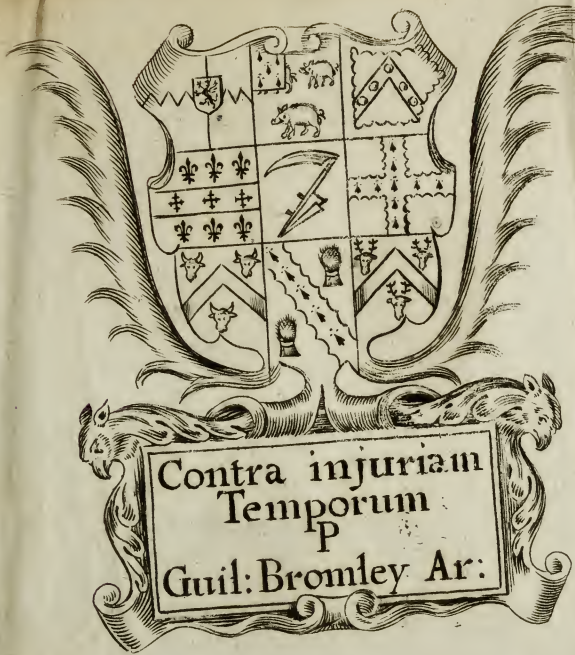 Contra injuriam
Temporum
P
Guil: Bromley Ar: